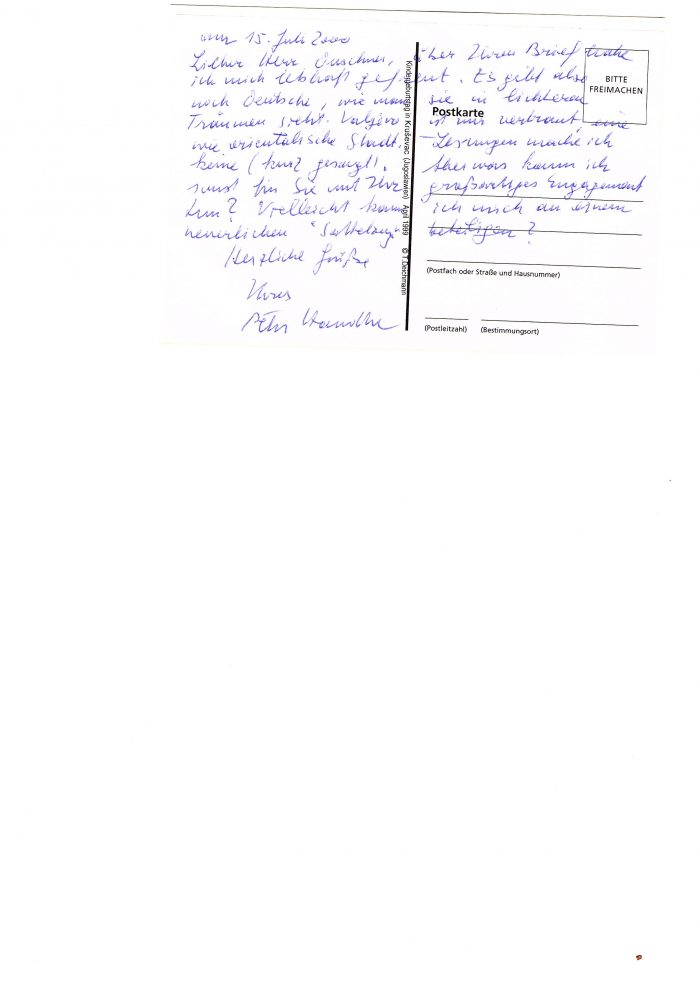 am 15. Juli 2000
Lieber Herr Duschner, über Ihren Brief habe
ich mich lebhaft gefreut. Es gibt also
noch Deutsche, wie man sie in lichteren
Träumen sieht. Valjevo ist mir vertraut, eine
wie orientalische Stadt. – Lesungen mache ich
keine (kurz gesagt). Aber was kann ich
sonst für Sie und Ihr großartiges Engagement
tun? Vielleicht kann ich mich an einem
neuerlichen "Sattelzug" beteiligen?
Herzliche Grüße
Ihres
Peter Handke
Kindergeburtstag in Kruševac (Jugoslawien) April 1999 © T.Deichmann
Postkarte
BITTE
FREIMACHEN
(Postfach oder Straße und Hausnummer)
(Postleitzahl) (Bestimmungsort)